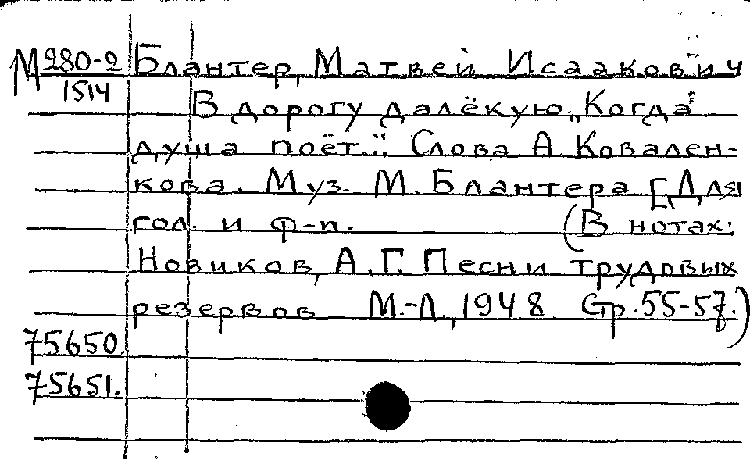 М 280-2 Блантер, Матвей Исаакович
1514 В дорогу далёкую „Когда
душа поёт..." Слова А Ковален-
кова. Муз. М. Блантера [Для
гол. и ф-п. (В нотах:
Новиков, А.Г. Песни трудовых
резервов М.-Л, 1948. Стр. 55-57.)
75650.
75651.